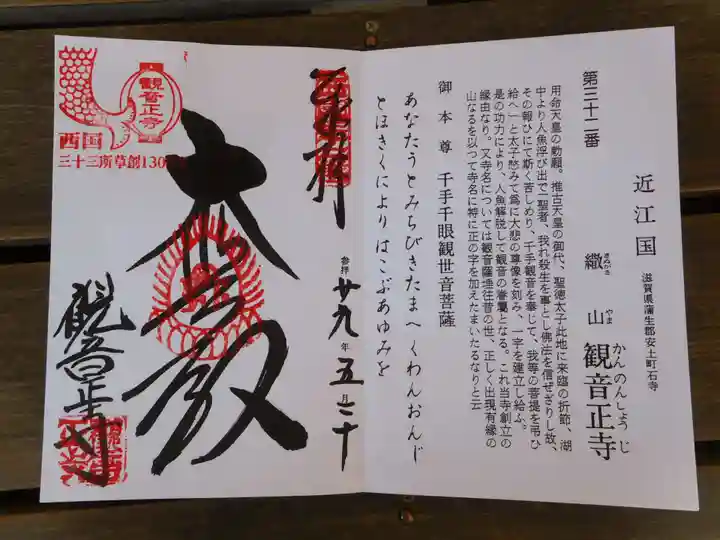 近江国
滋賀県蒲生郡安土町石寺
第三十二番
繖山観音正寺
きぬがさ
やま
かんのんしょうじ
用命天皇の勅願。推古天皇の御代、聖徳太子此地に来臨の折節、湖
中より人魚浮び出で「聖者、我れ殺生を事とし佛法を信ぜざりし故、
その報ひにて斯く苦しめり、千手観音を奉じて、我等の菩提を弔ひ
給へ」と太子愍みて爲に大悲の尊像を刻み、一宇を建立し給ふ。
是の功力により、人魚解脱して観音の眷屬となる。これ当寺創立の
縁由なり。又寺名については観音薩埵往昔の世、正しく出現有縁の
山なるを以つて寺名に特に正の字を加えたまいたるなりと云
御本尊 千手千眼観世音菩薩
あなたうとみちびきたまへくわんおんじ
とほきくによりはこぶあゆみを
奉拝
参拝 廿九年五月二十
大悲殿
観音正寺
観音正寺
西国
三十三所草創130